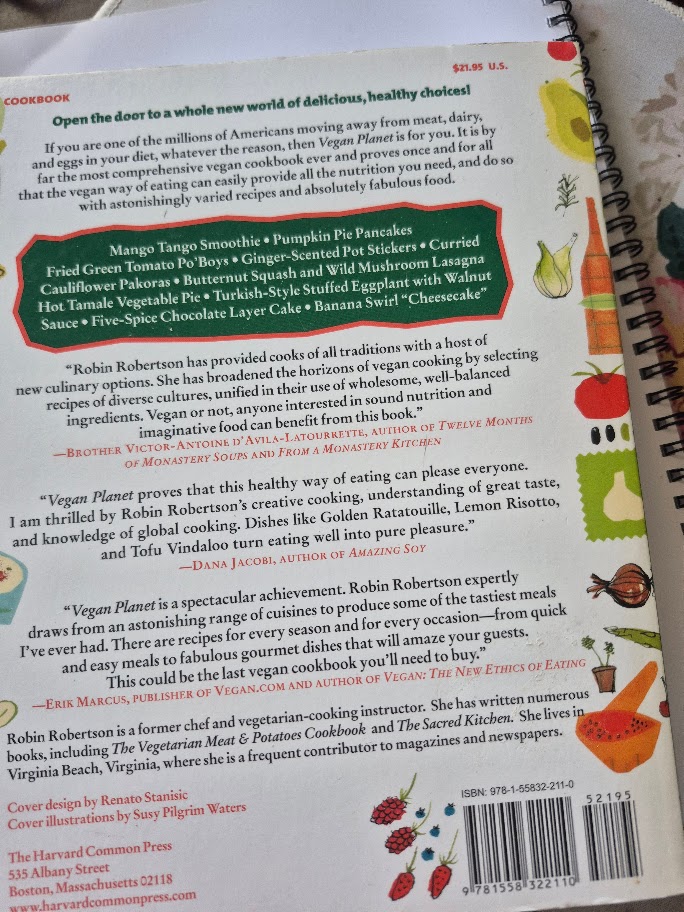 COOKBOOK
$21.95 U.S.
Open the door to a whole new world of delicious, healthy choices!
If you are one of the millions of Americans moving away from meat, dairy,
and eggs in your diet, whatever the reason, then Vegan Planet is for you. It is by
far the most comprehensive vegan cookbook ever and proves once and for all
that the vegan way of eating can easily provide all the nutrition you need, and do so
with astonishingly varied recipes and absolutely fabulous food.
Mango Tango Smoothie • Pumpkin Pie Pancakes
Fried Green Tomato Po'Boys • Ginger-Scented Pot Stickers • Curried
Cauliflower Pakoras • Butternut Squash and Wild Mushroom Lasagna
Hot Tamale Vegetable Pie • Turkish-Style Stuffed Eggplant with Walnut
Sauce • Five-Spice Chocolate Layer Cake • Banana Swirl “Cheesecake”
“Robin Robertson has provided cooks of all traditions with a host of
new culinary options. She has broadened the horizons of vegan cooking by selecting
recipes of diverse cultures, unified in their use of wholesome, well-balanced
ingredients. Vegan or not, anyone interested in sound nutrition and
imaginative food can benefit from this book.”
—Brother Victor-Antoine d'Avila-Latourrette, author of Twelve Months
of Monastery Soups and From a Monastery Kitchen
“Vegan Planet proves that this healthy way of eating can please everyone.
I am thrilled by Robin Robertson's creative cooking, understanding of great taste,
and knowledge of global cooking. Dishes like Golden Ratatouille, Lemon Risotto,
and Tofu Vindaloo turn eating well into pure pleasure.”
—Dana Jacobi, author of Amazing Soy
“Vegan Planet is a spectacular achievement. Robin Robertson expertly
draws from an astonishing range of cuisines to produce some of the tastiest meals
I've ever had. There are recipes for every season and for every occasion—from quick
and easy meals to fabulous gourmet dishes that will amaze your guests.
This could be the last vegan cookbook you'll need to buy.”
—Erik Marcus, publisher of Vegan.com and author of Vegan: The New Ethics of Eating
Robin Robertson is a former chef and vegetarian-cooking instructor. She has written numerous
books, including The Vegetarian Meat & Potatoes Cookbook and The Sacred Kitchen. She lives in
Virginia Beach, Virginia, where she is a frequent contributor to magazines and newspapers.
Cover design by Renato Stanisic
Cover illustrations by Susy Pilgrim Waters
The Harvard Common Press
535 Albany Street
Boston, Massachusetts 02118
www.harvardcommonpress.com
ISBN: 978-1-55832-211-0
52195
9 781558 322110